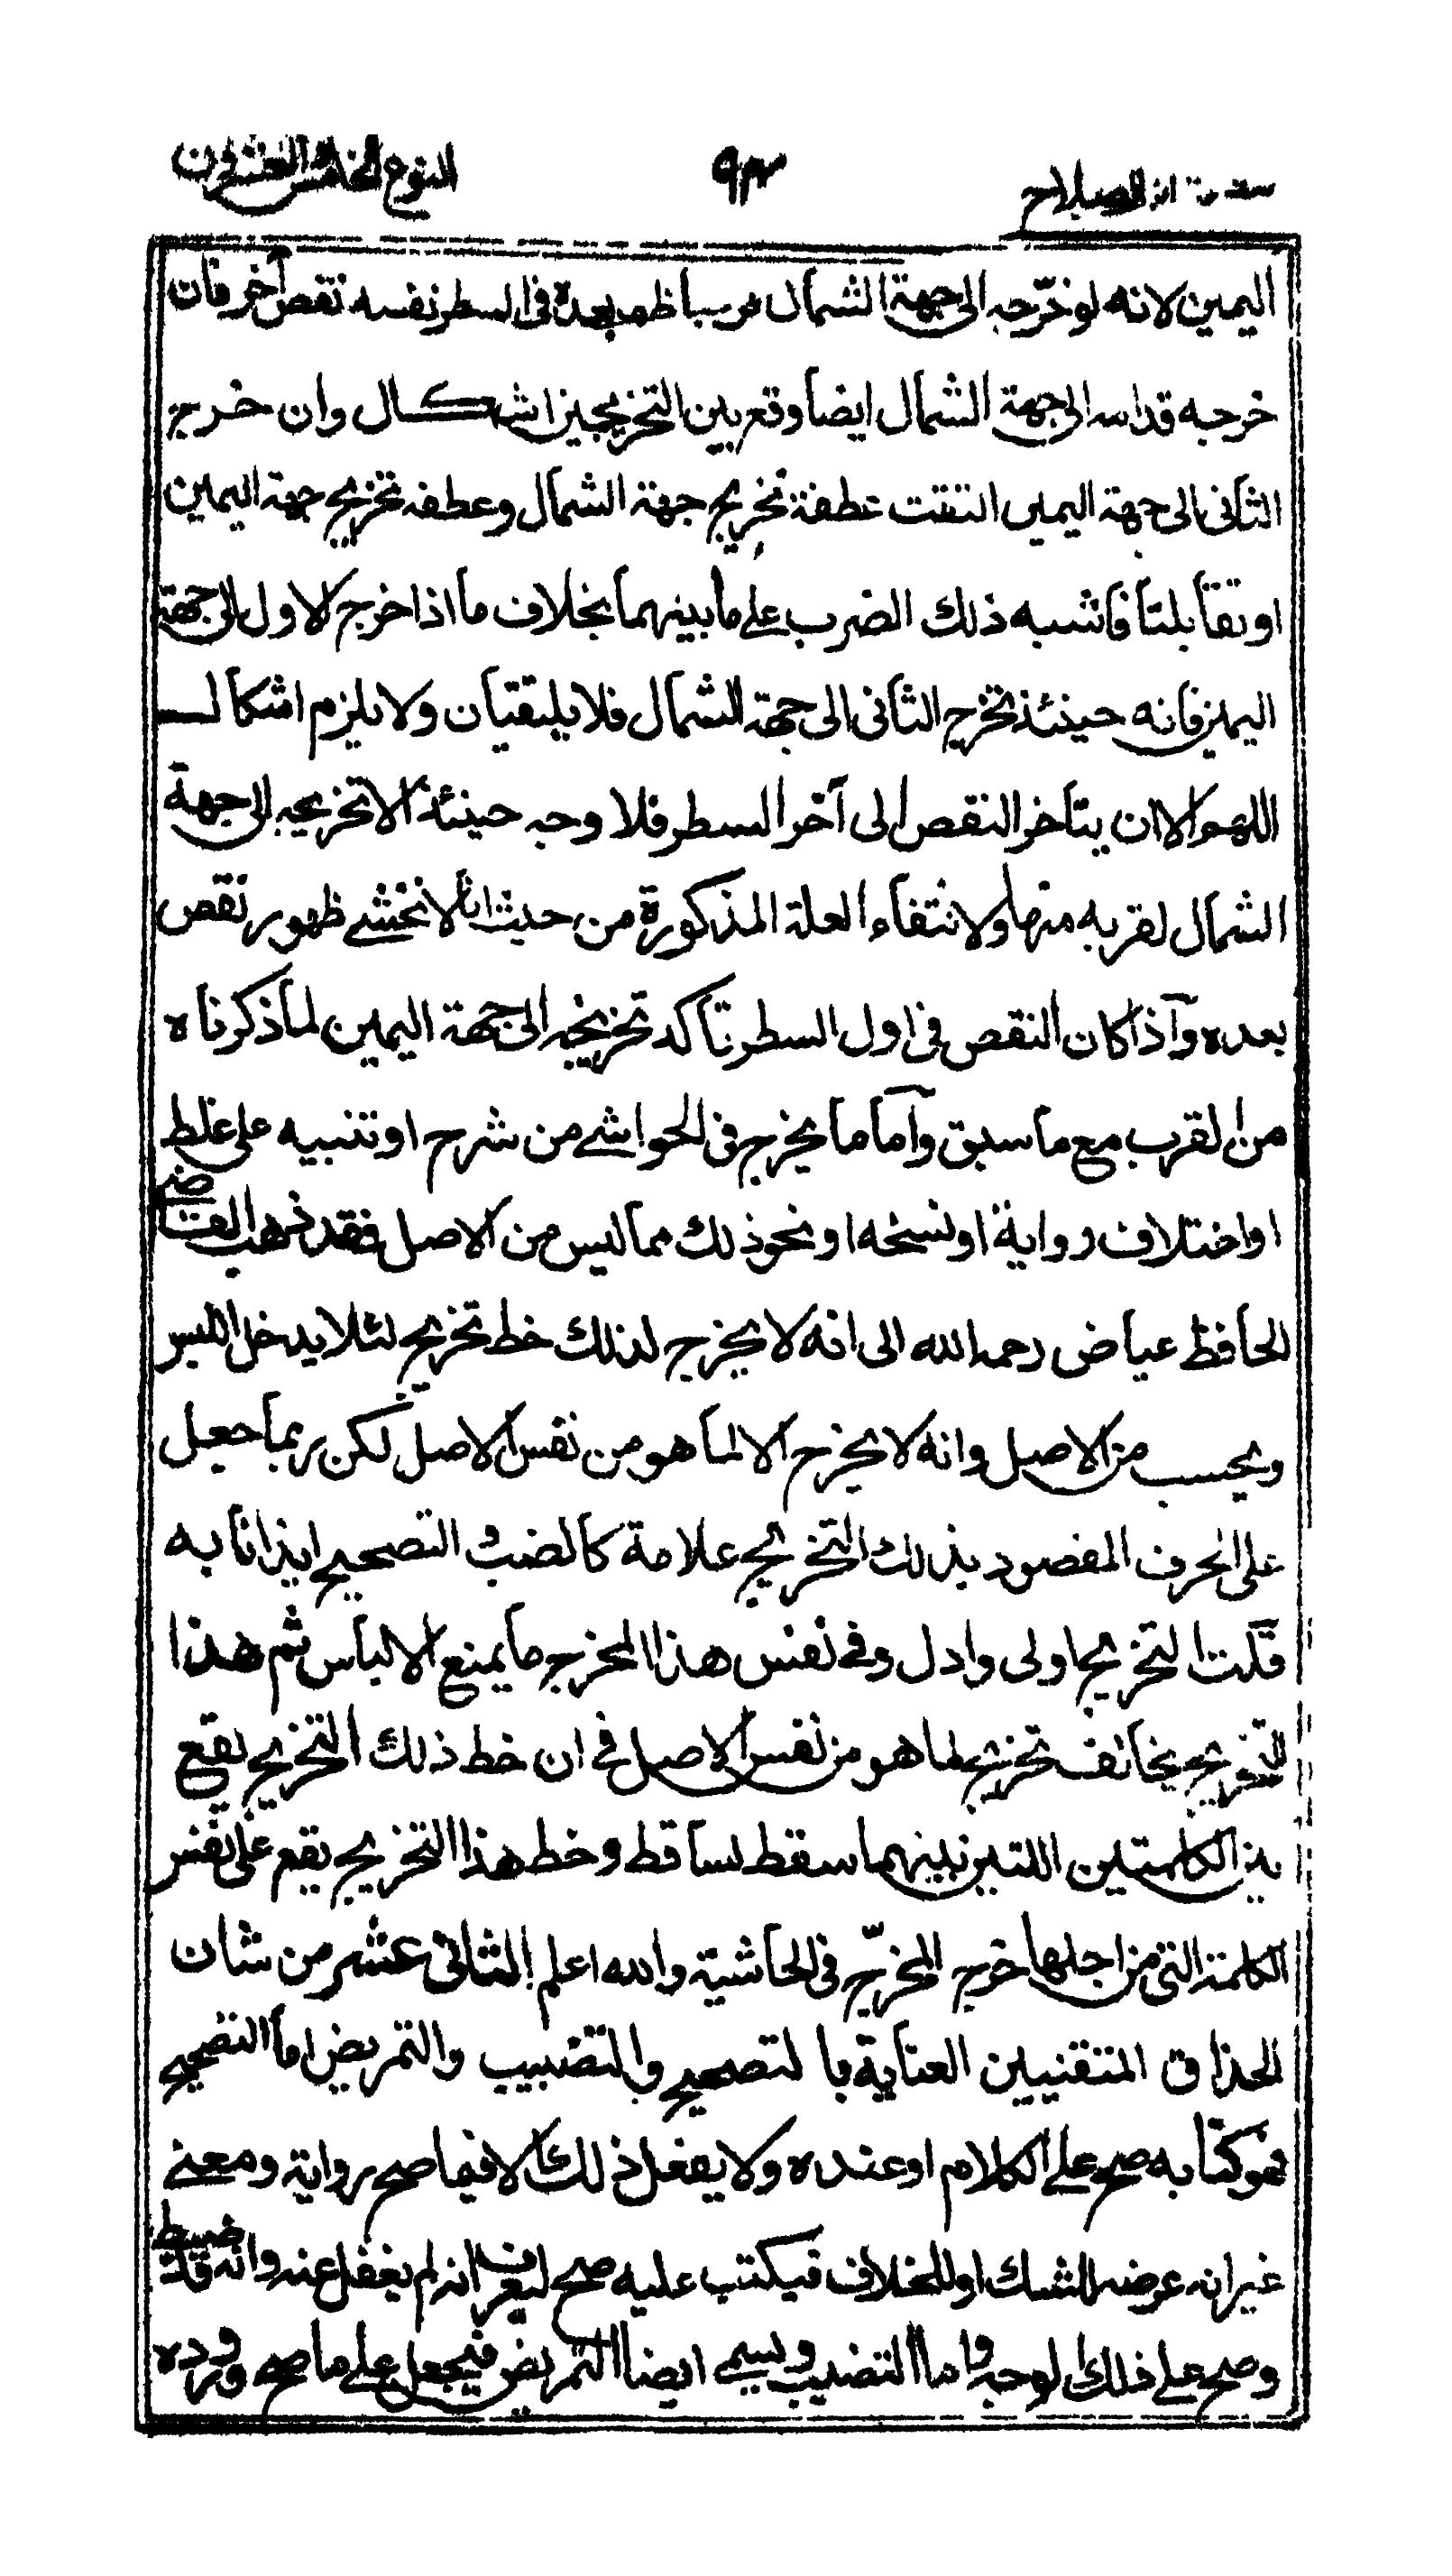 مقدمة ابن الصلاح ٩٣ النوع الخامس والعشرون
اليمين لانه لو خرّجه الى جهة الشمال فربما ظهر بعده فى السطر نفسه نقص آخر فان
خرجه قدامه الى جهة الشمال ايضا وقع بين التخريجين اشكال وان خرج
الثانى الى جهة اليمين التقت عطفة تخريج جهة الشمال وعطفه تخريج جهة اليمين
او تقابلتا فاشبه ذلك الضرب على ما بينهما بخلاف ما اذا خرج الاول الى جهة
اليمين فانه حينئذ تخرج الثانى الى جهة الشمال فلا يلتقيان ولا يلزم اشكال
اللهم الا ان يتأخر النقص الى آخر السطر فلا وجه حينئذ الا تخريجه الى جهة
الشمال لقربه منها ولانتفاء العلة المذكورة من حيث انا لا نخشى ظهور نقص
بعده وآذا كان النقص فى اول السطر تأكد تخريجه الى جهة اليمين لما ذكرناه
من القرب مع ما سبق وآما ما يخرج فى الحواشى من شرح او تنبيه على غلط
او اختلاف رواية او نسخه او نحو ذلك مما ليس من الاصل فقد ذهب القاضى
الحافظ عياض رحمه الله الى انه لا يخرج لذلك خط تخريج لئلا يدخل اللبس
ويحسب من الاصل وانه لا يخرج الا لما هو من نفس الاصل لكن ربما جعل
على الحرف المقصود بذلك التخريج علامة كالضبة و التصحيح ايذانا به
قلت التخريج اولى وادل وفى نفس هذا المخرج ما يمنع الالباس ثم هذا
التخريج يخالف تخريج لما هو من نفس الاصل فى ان خط ذلك التخريج يقع
بين الكلمتين اللتين بينهما سقط لساقط وخط هذا التخريج يقع على نفس
الكلمة التى من اجلها خرج المخرّج فى الحاشية والله اعلم الثانى عشر من شان
الحذاق المتقنين العناية با لتصحيح والتضبيب والتمريض اما التصحيح
فهو كتابه صح على الكلام او عنده ولا يفعل ذلك الا فيما صح رواية ومعنى
غير انه عرضه للشك او للخلاف فيكتب عليه صح ليعرف انه لم يغفل عنه وانه قد ضبط
وصح على ذلك الوجه واما التضبيب ويسمى ايضا التمريض فيجعل على ما صح وروده